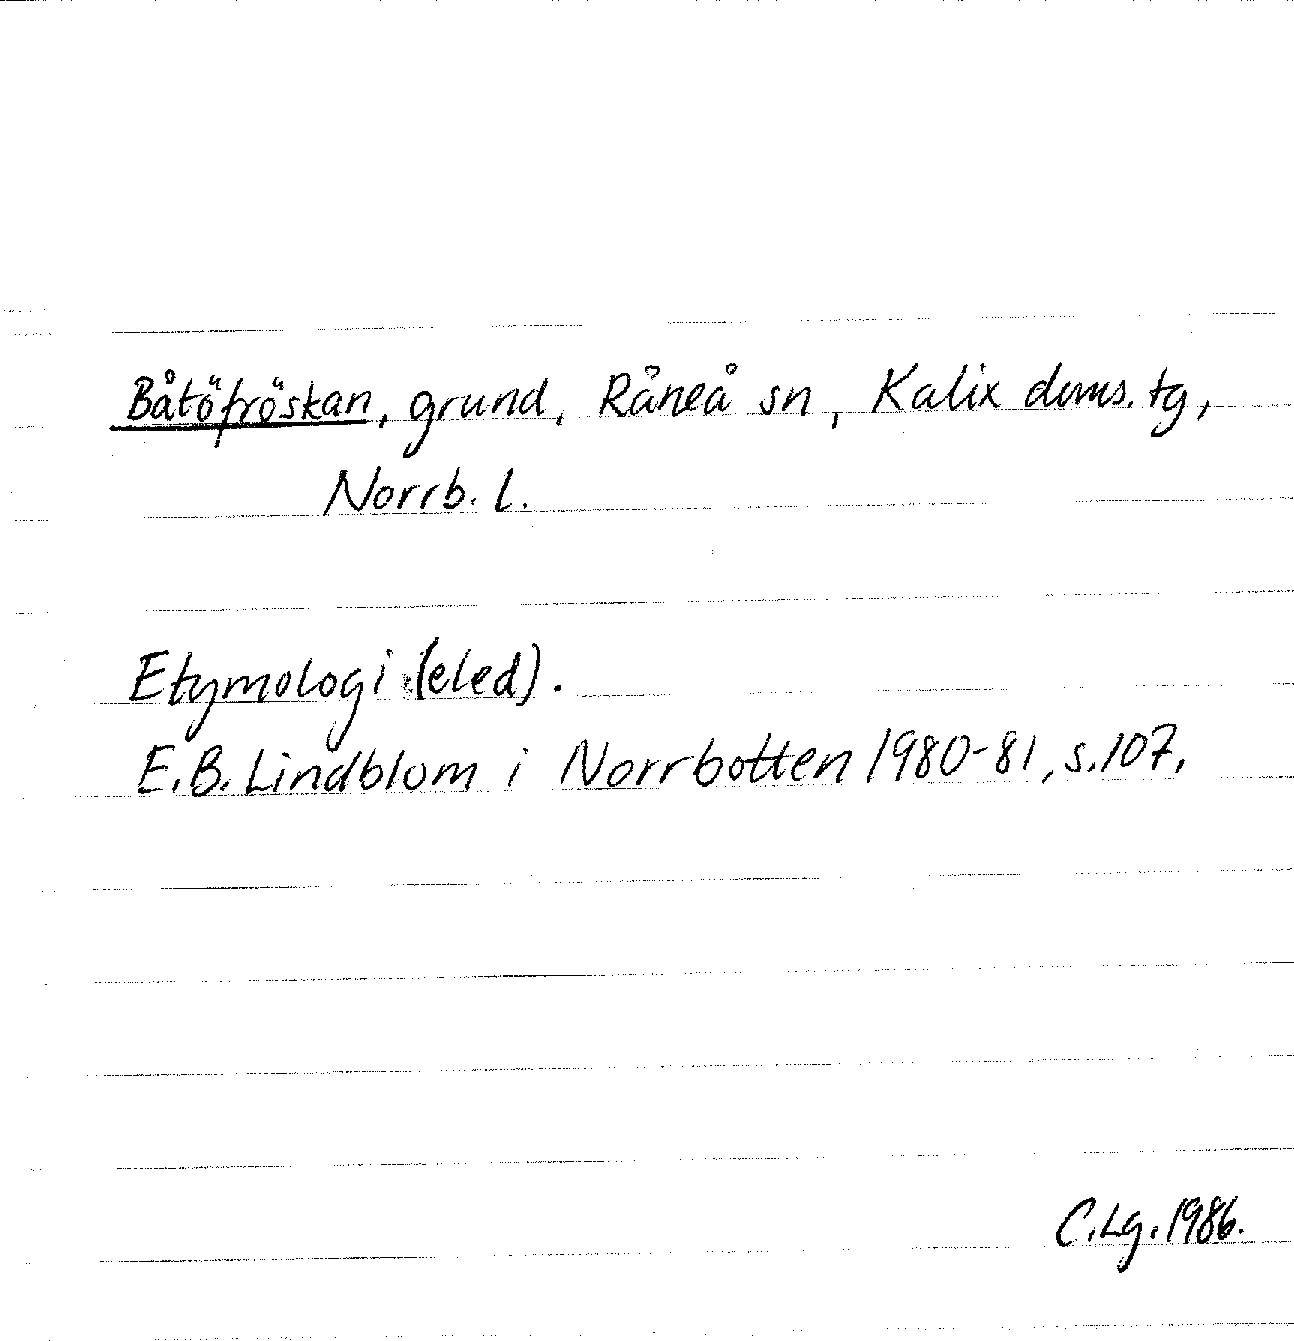 Båtöfröskan, grund, Råneå sn, Kalix doms. tg,
Norrb. l.
Etymologi (eled).
E.B. Lindblom i Norrbotten 1980-81, s. 107.
C.Lg. 1986.